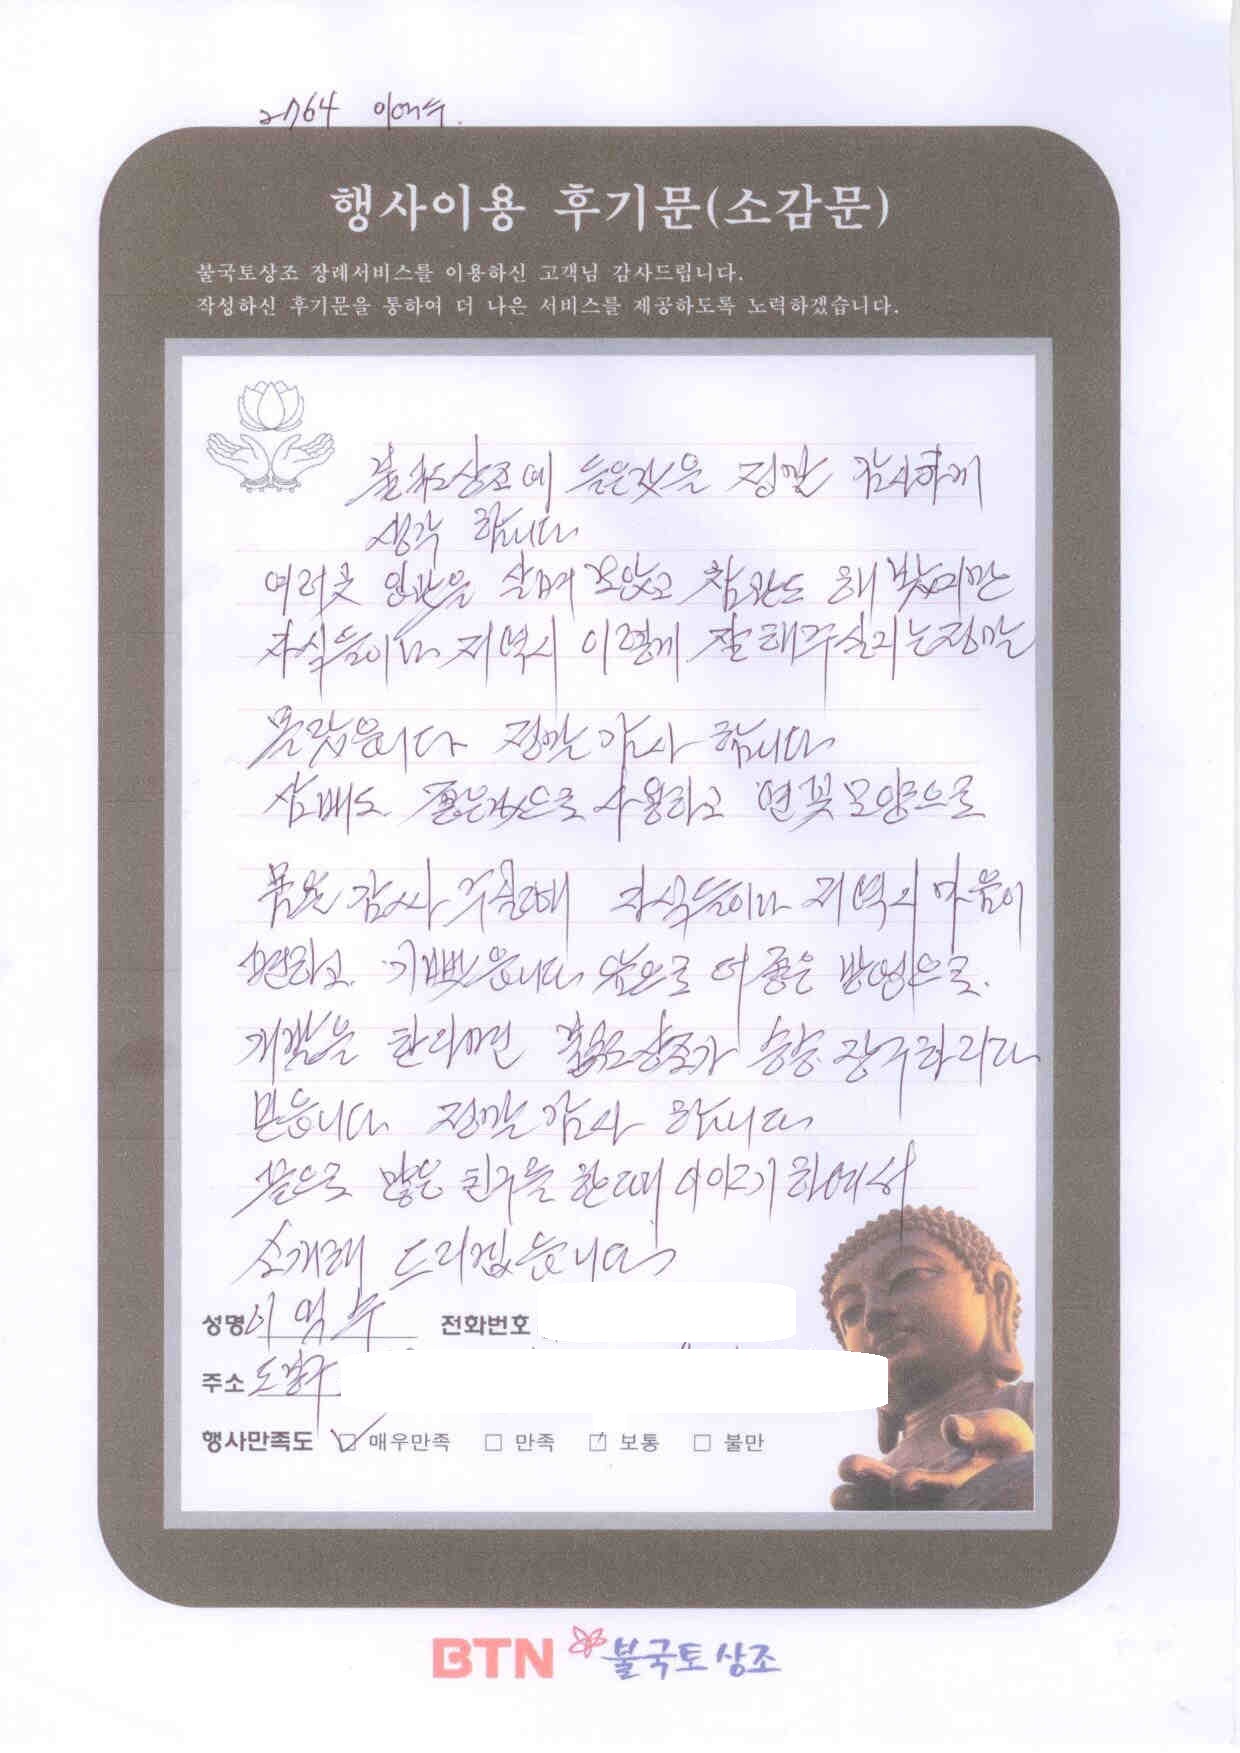 2764 이억수.
행사이용 후기문(소감문)
불국토상조 장례서비스를 이용하신 고객님 감사드립니다.
작성하신 후기문을 통하여 더 나은 서비스를 제공하도록 노력하겠습니다.
불국토상조에 들은것을 정말 감사하게
생각 합니다
여러곳 입관을 살펴 보았고 참관도 해 봤지만
자식들이나 저역시 이렇게 잘해주실지는 정말
몰랐읍니다 정말 감사 합니다
삼베도 좋은것으로 사용하고 연꽃모양으로
몸을 감싸 주실때 자식들이나 저역시 마음이
편하고 기뻤읍니다 앞으로 더 좋은 방영으로
개발을 한다면 불국토상조가 승승 장구하리라
믿읍니다 정말 감사 합니다
끝으로 많은 친구들 한테 이야기 하여서
소개해 드리겠읍니다
성명 이억수 전화번호
주소 도봉구
행사만족도 매우만족 만족 보통 불만
BTN 불국토상조